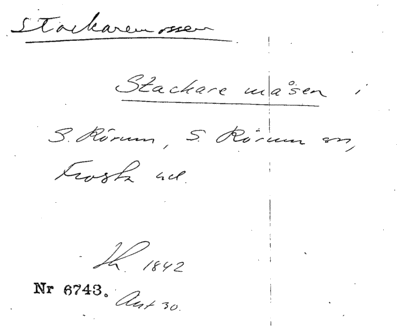 Stackaremossen
Stackare måsen i
S. Rörum, S. Rörum sn,
Frosta hd.
1842
Nr 6743. Ant 30.